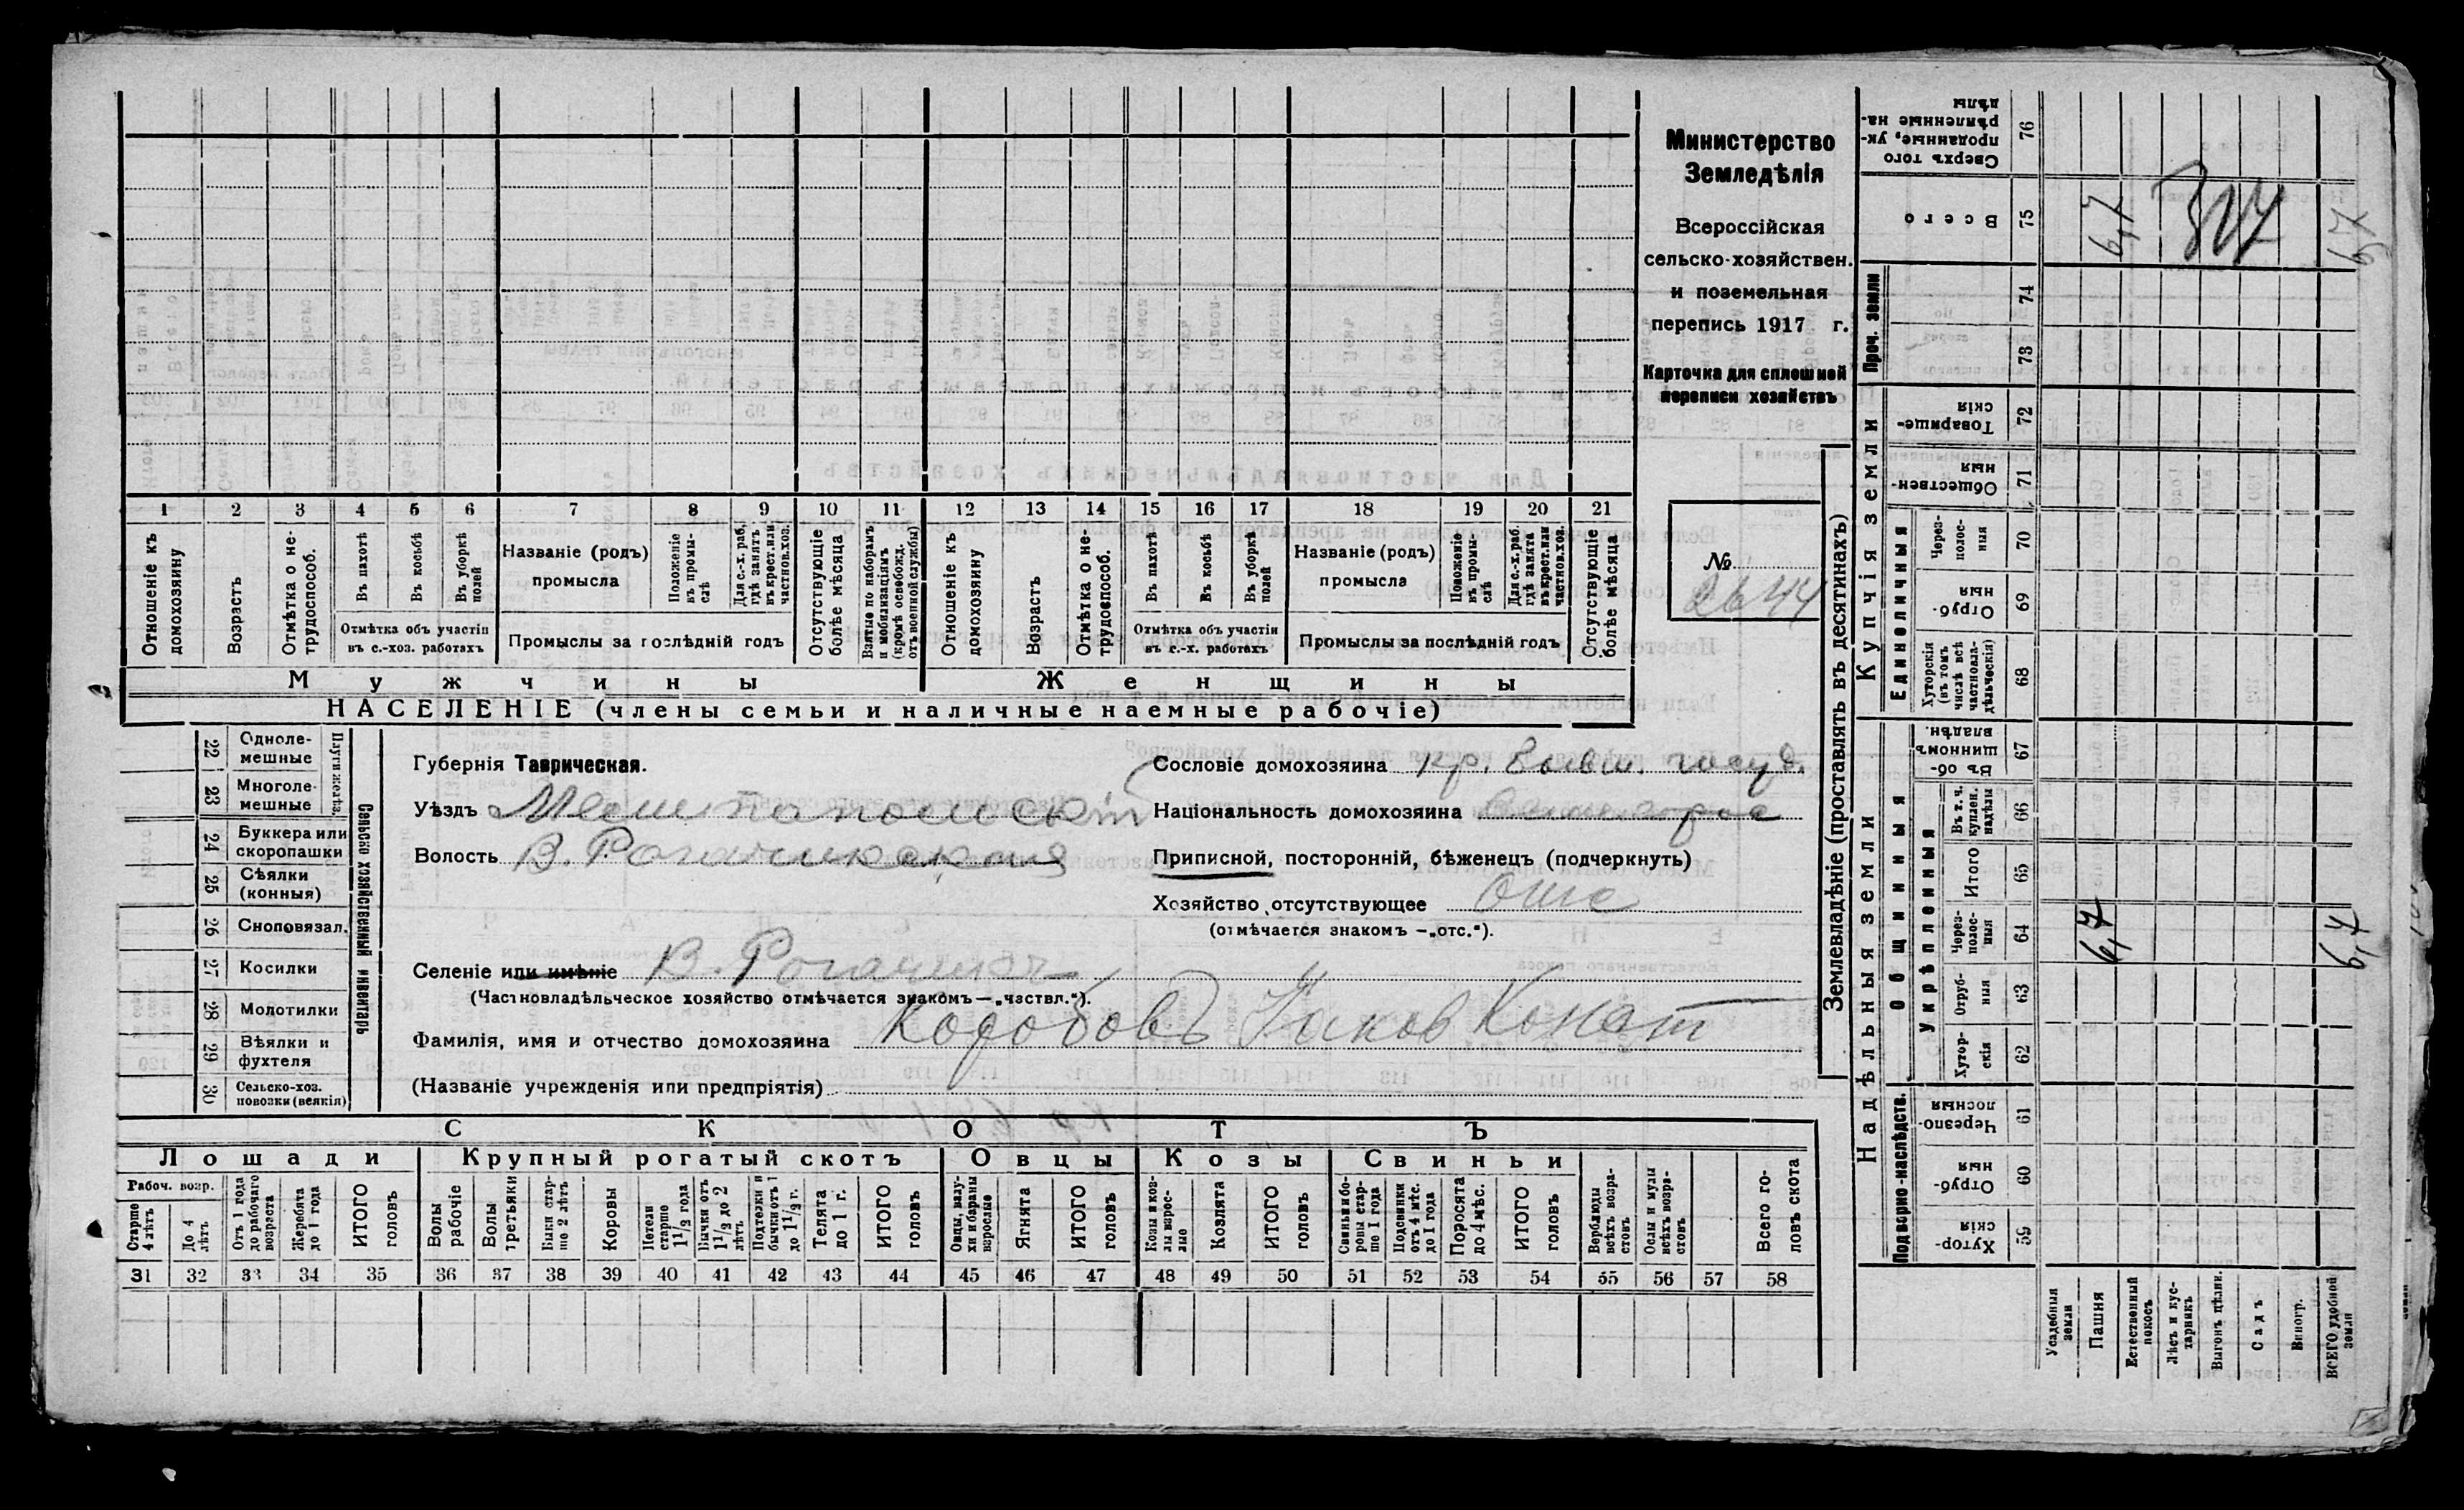 Министерство
Земледѣлія
Всероссійская
сельско-хозяйствен.
и поземельная
перепись 1917 г.
Карточка для сплошной
переписи хозяйствъ
№
2644
1 2 3 4 5 6 7 8 9 10 11 12 13 14 15 16 17 18 19 20 21
Отношеніе къ домохозяину
Возрастъ
Отмѣтка о нетрудоспособ.
Въ пахотѣ
Въ косьбѣ
Въ уборкѣ полей
Отмѣтка объ участіи въ с.-хоз. работахъ
Названіе (родъ) промысла
Положеніе въ промыслѣ
Для с.-х. раб., гдѣ занятъ въ крест. или частнов. хоз.
Промыслы за послѣдній годъ
Отсутствующіе болѣе мѣсяца
Взятые по наборамъ и мобилизаціямъ (кромѣ освобожд. отъ военной службы)
Отношеніе къ домохозяину
Возрастъ
Отмѣтка о нетрудоспособ.
Въ пахотѣ
Въ косьбѣ
Въ уборкѣ полей
Отмѣтка объ участіи въ с.-х. работахъ
Названіе (родъ) промысла
Положеніе въ промыслѣ
Для с.-х. раб. гдѣ занята въ крест. или частнов. хоз.
Промыслы за послѣдній годъ
Отсутствующіе болѣе мѣсяца
Мужчины
Женщины
НАСЕЛЕНІЕ (члены семьи и наличные наемные рабочіе)
Сельско хозяйственный инвентарь
Плуги желѣз.
22 Однолемешные
23 Многолемешные
24 Буккера или скоропашки
25 Сѣялки (конныя)
26 Сноповязал.
27 Косилки
28 Молотилки
29 Вѣялки и фухтеля
30 Сельско-хоз. повозки (всякія)
Губернія Таврическая.
Уѣздъ Мелитопольскій
Волость В. Рогачикская
Сословіе домохозяина кр. бывш. госуд.
Національность домохозяина
Приписной, посторонній, бѣженецъ (подчеркнуть)
Хозяйство отсутствующее Отс
(отмѣчается знакомъ —„отс.“).
Селеніе или имѣніе В. Рогачикъ
(Частновладѣльческое хозяйство отмѣчается знакомъ—„частвл.“).
Фамилія, имя и отчество домохозяина Коробовъ Яков Конст
(Названіе учрежденія или предпріятія)
СКОТЪ
Лошади
Крупный рогатый скотъ
Овцы
Козы
Свиньи
Рабоч. возр.
Старше 4 лѣтъ
До 4 лѣтъ
Отъ 1 года до рабочаго возраста
Жеребята до 1 года
ИТОГО головъ
Волы рабочіе
Волы третьяки
Быки старше 2 лѣтъ
Коровы
Нетели старше 1 1/2 года
Бычки отъ 1 1/2 до 2 лѣтъ
Подтелки и бычки отъ 1 до 1 1/2 г.
Телята до 1 г.
ИТОГО головъ
Овцы, валухи и бараны взрослые
Ягнята
ИТОГО головъ
Козы и козлы взрослые
Козлята
ИТОГО головъ
Свиньи и боровы старше 1 года
Подсвинки отъ 4 мѣс. до 1 года
Поросята до 4 мѣс.
ИТОГО головъ
Верблюды всѣхъ возрастовъ
Ослы и мулы всѣхъ возрастовъ
Всего головъ скота
31 32 33 34 35 36 37 38 39 40 41 42 43 44 45 46 47 48 49 50 51 52 53 54 55 56 57 58
Землевладѣніе (проставлять въ десятинахъ)
Надѣльныя земли
Купчія земли
Проч. земли
Подворно-наслѣдств.
Общинныя
Укрѣпленныя
Единоличныя
Сверхъ того проданные, укрѣпленные надѣлы 76
Всего 75 6,7 6,7
74
73
Товарищескія 72
Общественныя 71
Черезполосныя 70
Отрубныя 69
Хуторскія (въ томъ числѣ всѣ частновладѣльческія) 68
Въ общинномъ владѣн. 67
Въ т. ч. куплен. надѣлы 66
Итого 65
Черезполосныя 64 6,7 6,7
Отрубныя 63
Хуторскія 62
Черезполосныя 61
Отрубныя 60
Хуторскія 59
Усадебныя земли
Пашня
Естественный покосъ
Лѣсъ и кустарникъ
Выгонъ цѣлин.
Садъ
Виногр.
ВСЕГО удобной земли